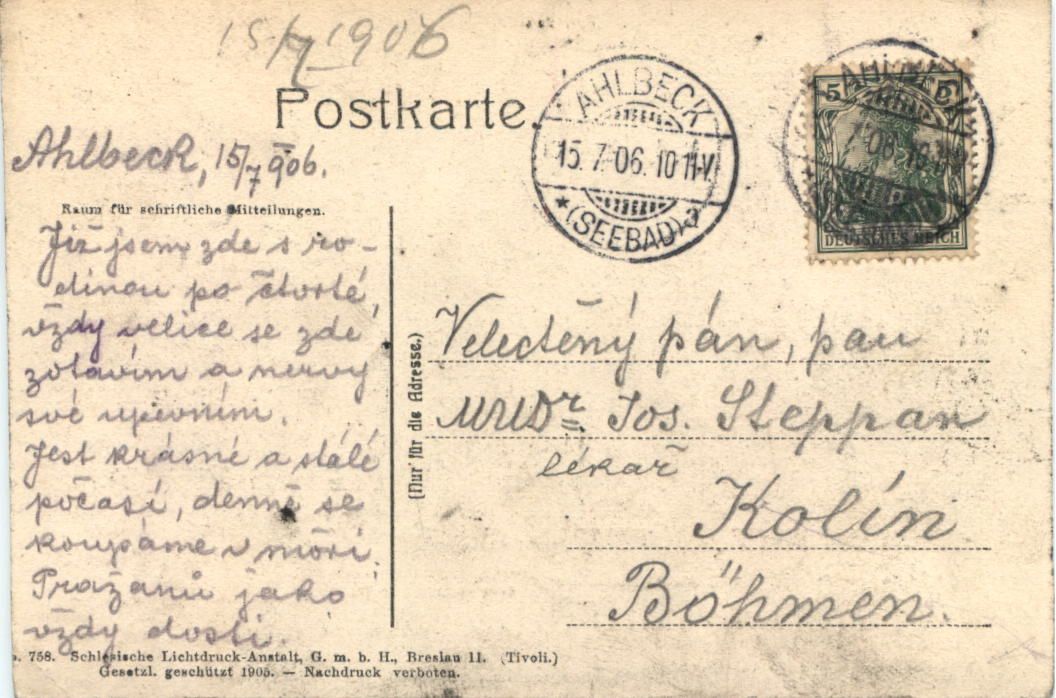 15/7 1906
Postkarte.
AHLBECK
15.7.06.10-11V.
*(SEEBAD)a
5 5
AHLBECK
DEUTSCHES REICH
Ahlbeck, 15/7 906.
Raum für schriftliche Mitteilungen.
Již jsem zde s ro-
dinou po čtvrté,
vždy velice se zde
zotavím a nervy
své upevním.
Jest krásné a stálé
počasí, denně se
koupáme v moři.
Pražanů jako
vždy dosti.
(Nur für die Adresse.)
Velectěný pán, pan
MUDr Jos. Steppan
lékař
Kolín
Böhmen.
758. Schlesische Lichtdruck-Anstalt, G. m. b. H., Breslau II. (Tivoli.)
Gesetzl. geschützt 1905. — Nachdruck verboten.